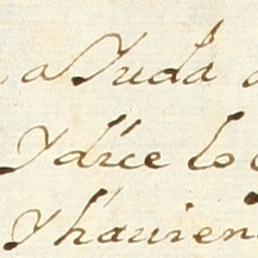 a Yuda
Y dice lo
Y haurien